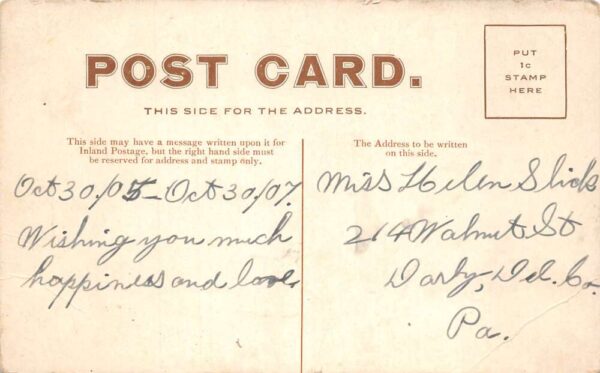 POST CARD.
THIS SIDE FOR THE ADDRESS.
PUT
1c
STAMP
HERE
This side may have a message written upon it for
Inland Postage, but the right hand side must
be reserved for address and stamp only.
Oct 30/05 - Oct 30/07.
Wishing you much
happiness and love.
The Address to be written
on this side.
Miss Helen Slick
214 Walnut St
Darby, Del. Co.
Pa.